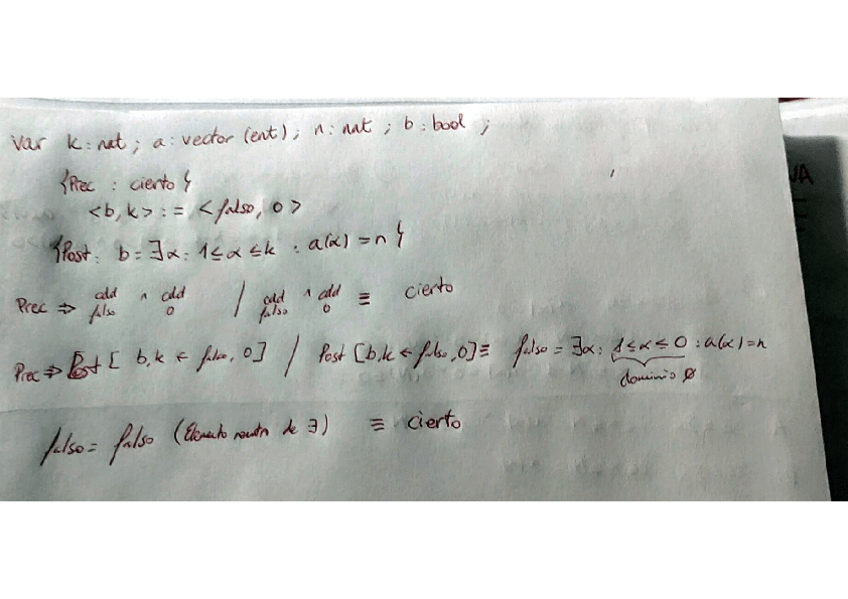 var k: nat ; a: vector (ent) ; n: nat ; b: bool ;
{Prec : cierto}
<b, k> := <falso, 0>
{Post: b = ∃α: 1 ≤ α ≤ k : a(α) = n}
Prec ⇒ add falso ∧ add 0 / add falso ∧ add 0 ≡ cierto
Prec ⇒ Post [ b, k ← falso, 0] / Post [b, k ← falso, 0] ≡ falso = ∃α: 1 ≤ α ≤ 0 : a(α) = n
dominio ∅
falso = falso (Elemento neutro de ∃) ≡ cierto